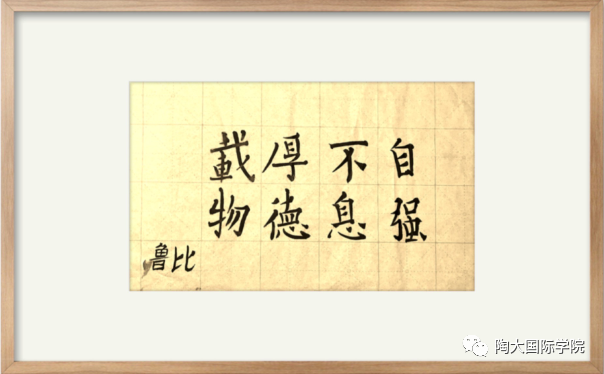 自强
不息
厚德
載物
鲁比
陶大国际学院